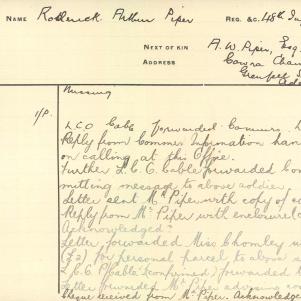 NAME Roderick Arthur Piper REG. &C. 48th
NEXT OF KIN A. W. Piper, Esq.
ADDRESS Cowra
Grenfell
Missing
1/P.
LCO Cable forwarded
Reply from Commr. Information
on calling at this Office.
Further L.C.C. Cable forwarded
mitting message to above soldier
Letter sent Mr Piper with copy of
Reply from Mr Piper with enclosure
Acknowledged.
Letter forwarded Miss Chomley
for personal parcel to above
L.C.C. Cable (confirmed) forwarded
Letter forwarded Mr Piper advising
Cheque received from Mr Piper. Acknowledged